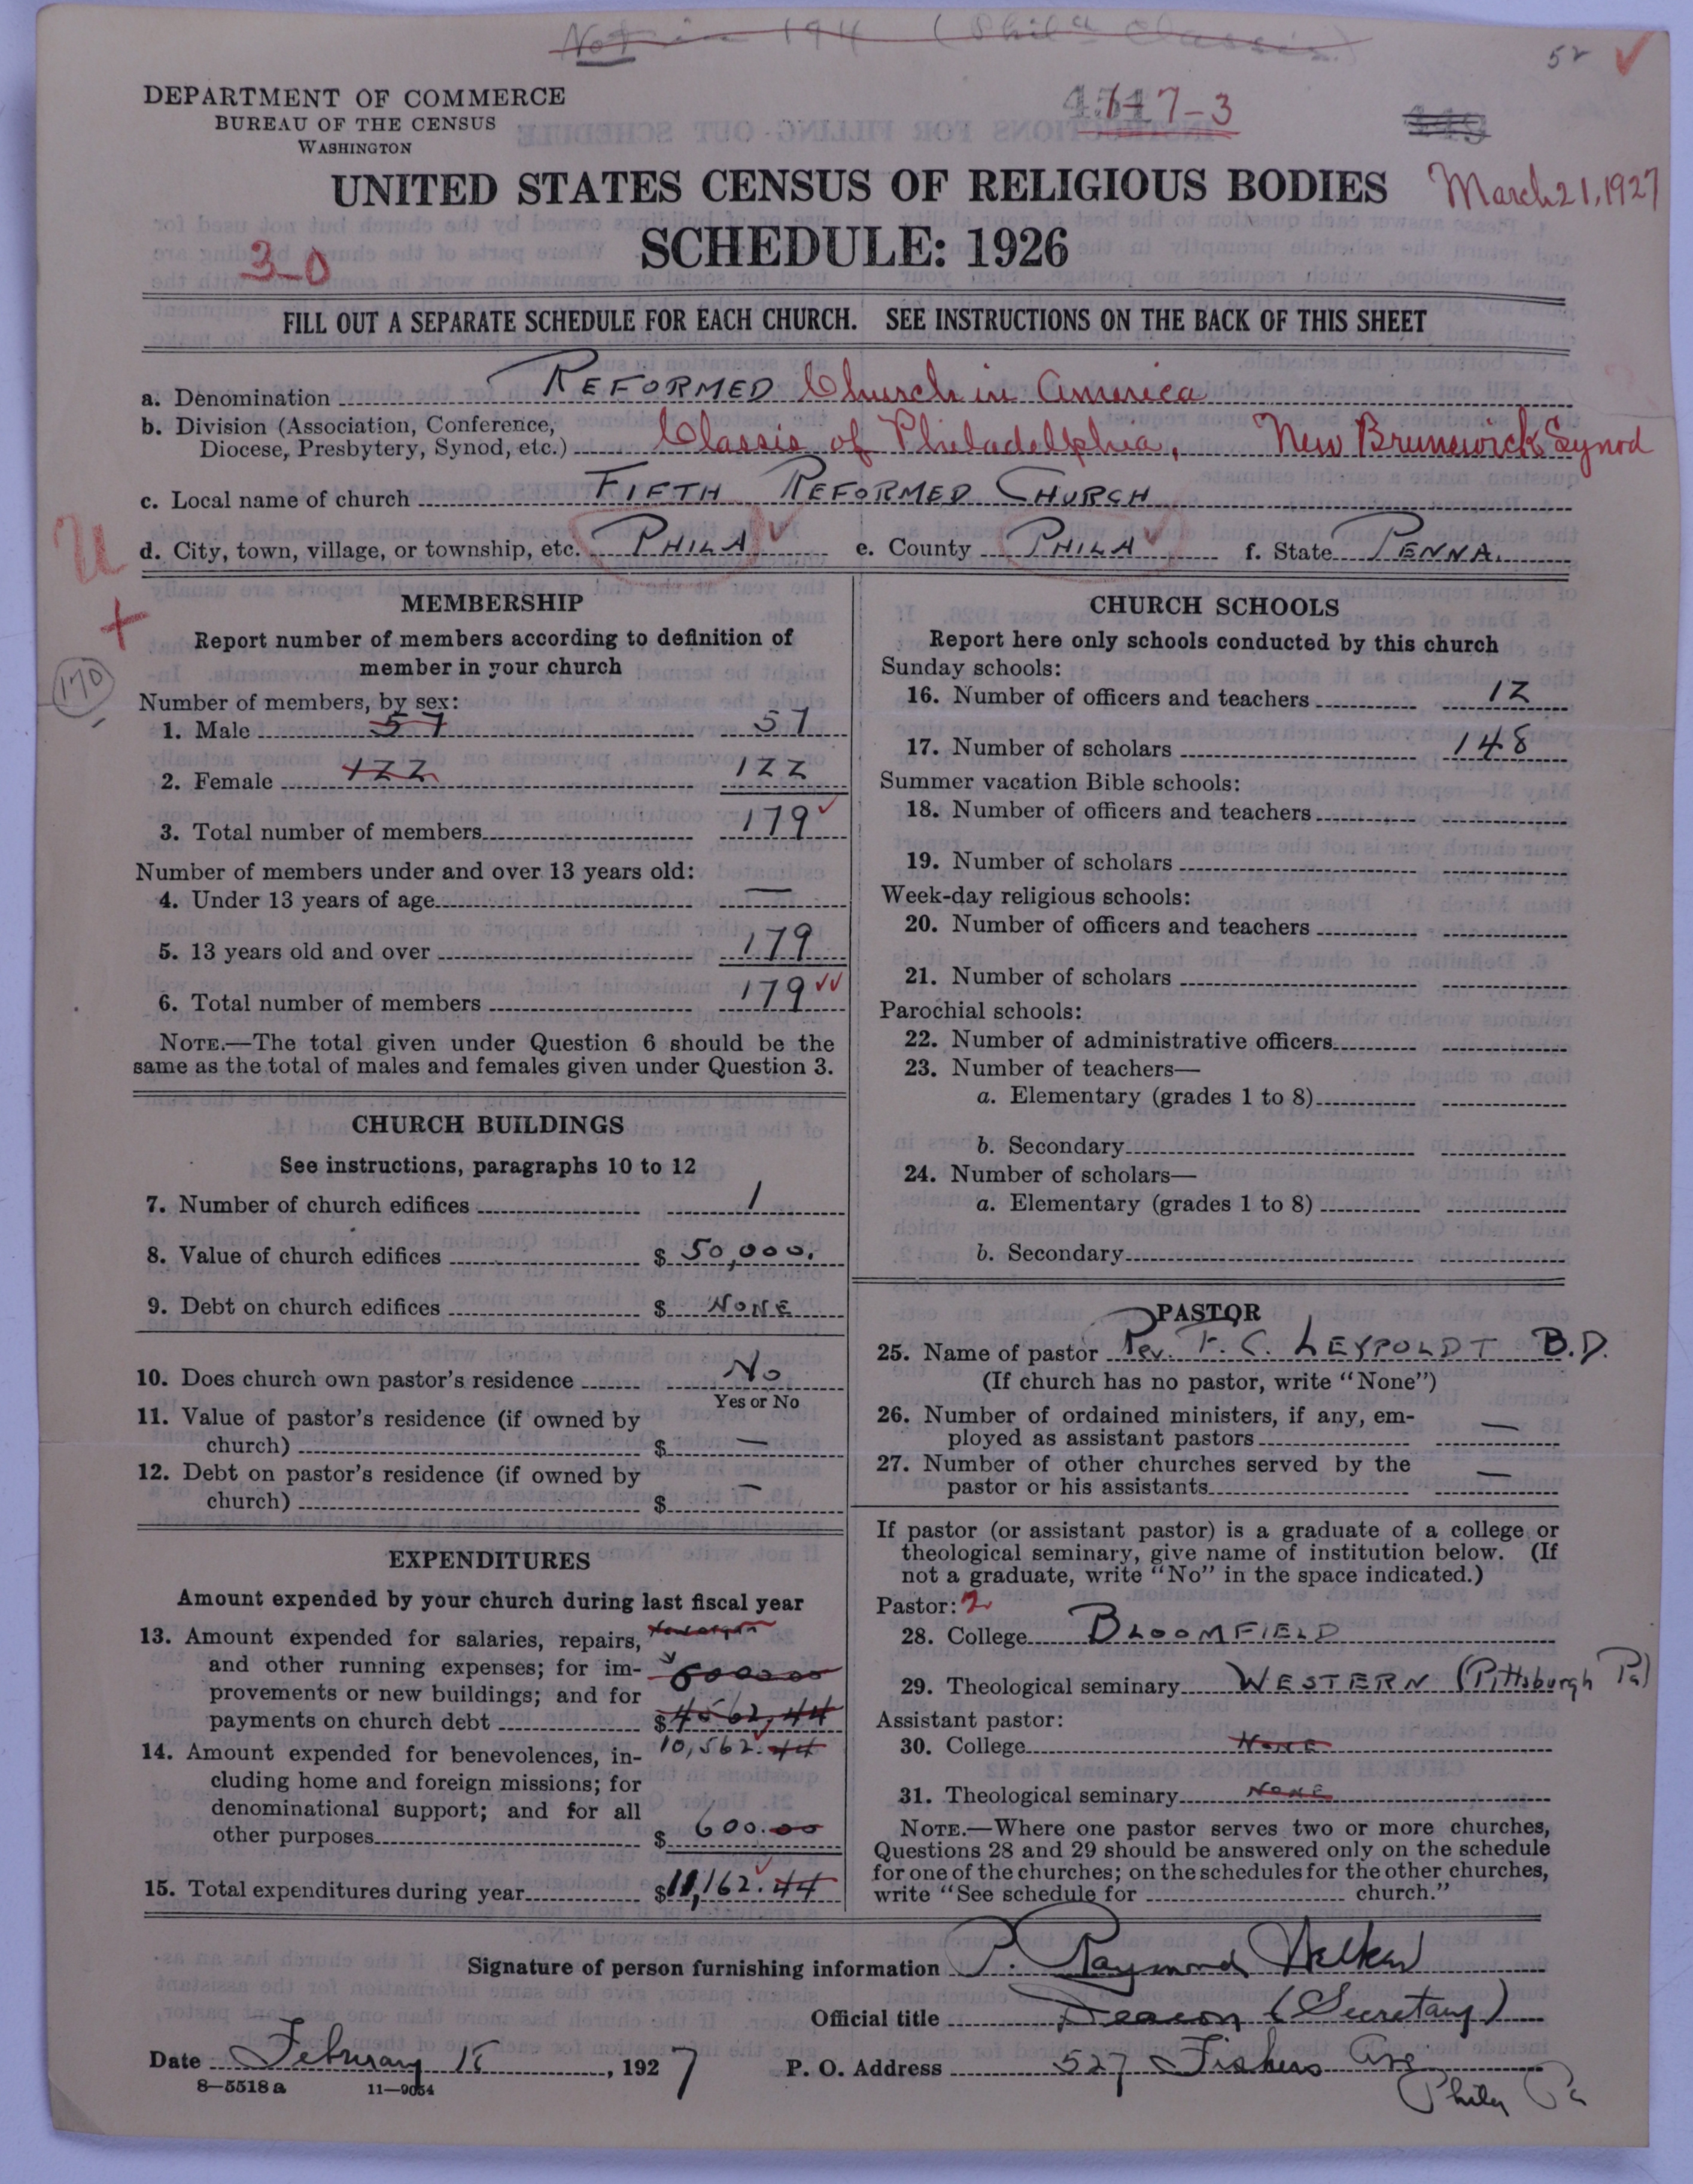 Not in 1941 (Phila Classis)
52
DEPARTMENT OF COMMERCE
BUREAU OF THE CENSUS
WASHINGTON
7-3
UNITED STATES CENSUS OF RELIGIOUS BODIES
March 21, 1927
SCHEDULE: 1926
3-0
FILL OUT A SEPARATE SCHEDULE FOR EACH CHURCH. SEE INSTRUCTIONS ON THE BACK OF THIS SHEET
a. Denomination REFORMED Church in America
b. Division (Association, Conference,
Diocese, Presbytery, Synod, etc.) Classis of Philadelphia, New Brunswick Synod
c. Local name of church FIFTH REFORMED CHURCH
d. City, town, village, or township, etc. PHILA e. County PHILA f. State PENNA.
U
+
170
MEMBERSHIP
Report number of members according to definition of
member in your church
Number of members, by sex:
1. Male 57 57
2. Female 122 122
3. Total number of members 179
Number of members under and over 13 years old:
4. Under 13 years of age —
5. 13 years old and over 179
6. Total number of members 179
NOTE.—The total given under Question 6 should be the
same as the total of males and females given under Question 3.
CHURCH BUILDINGS
See instructions, paragraphs 10 to 12
7. Number of church edifices 1
8. Value of church edifices $ 50,000.
9. Debt on church edifices $ NONE
10. Does church own pastor's residence No
Yes or No
11. Value of pastor's residence (if owned by
church) $ —
12. Debt on pastor's residence (if owned by
church) $ —
EXPENDITURES
Amount expended by your church during last fiscal year
13. Amount expended for salaries, repairs,
and other running expenses; for im- 6000.00
provements or new buildings; and for
payments on church debt $ 4562.44
14. Amount expended for benevolences, in- 10,562.44
cluding home and foreign missions; for
denominational support; and for all
other purposes $ 600.00
15. Total expenditures during year $ 11,162.44
CHURCH SCHOOLS
Report here only schools conducted by this church
Sunday schools:
16. Number of officers and teachers 12
17. Number of scholars 148
Summer vacation Bible schools:
18. Number of officers and teachers
19. Number of scholars
Week-day religious schools:
20. Number of officers and teachers
21. Number of scholars
Parochial schools:
22. Number of administrative officers
23. Number of teachers—
a. Elementary (grades 1 to 8)
b. Secondary
24. Number of scholars—
a. Elementary (grades 1 to 8)
b. Secondary
PASTOR
25. Name of pastor Rev. F. C. LEYPOLDT B.D.
(If church has no pastor, write "None")
26. Number of ordained ministers, if any, em-
ployed as assistant pastors —
27. Number of other churches served by the
pastor or his assistants —
If pastor (or assistant pastor) is a graduate of a college or
theological seminary, give name of institution below. (If
not a graduate, write "No" in the space indicated.)
Pastor: 2
28. College BLOOMFIELD
29. Theological seminary WESTERN (Pittsburgh Pa)
Assistant pastor:
30. College NONE
31. Theological seminary NONE
NOTE.—Where one pastor serves two or more churches,
Questions 28 and 29 should be answered only on the schedule
for one of the churches; on the schedules for the other churches,
write "See schedule for church."
Signature of person furnishing information P. Raymond Walker
Official title Deacon (Secretary)
Date February 15, 1927 P. O. Address 527 Fishers Ave
Phila Pa
8—5518 a 11—9054